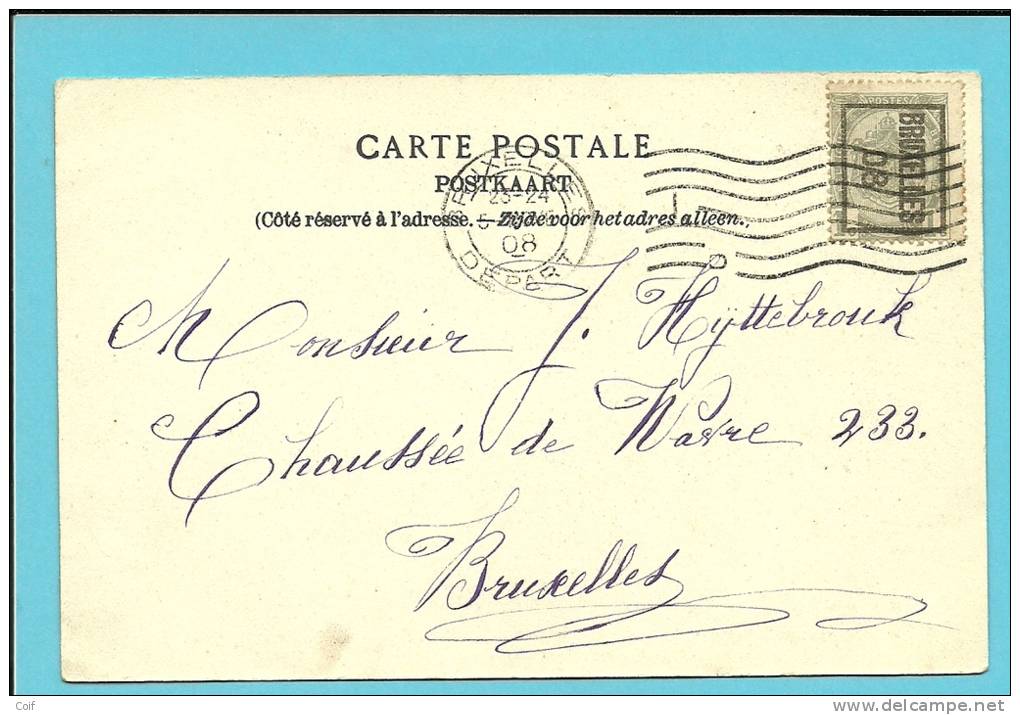 CARTE POSTALE
POSTKAART
(Côté réservé à l'adresse. — Zijde voor het adres alleen.)
POSTES
BRUXELLES
08
BRUXELLES
23-24
08
DEPART
Monsieur J. Hÿttebrouk
Chaussée de Wavre 233.
Bruxelles
Coif
www.delcampe.net